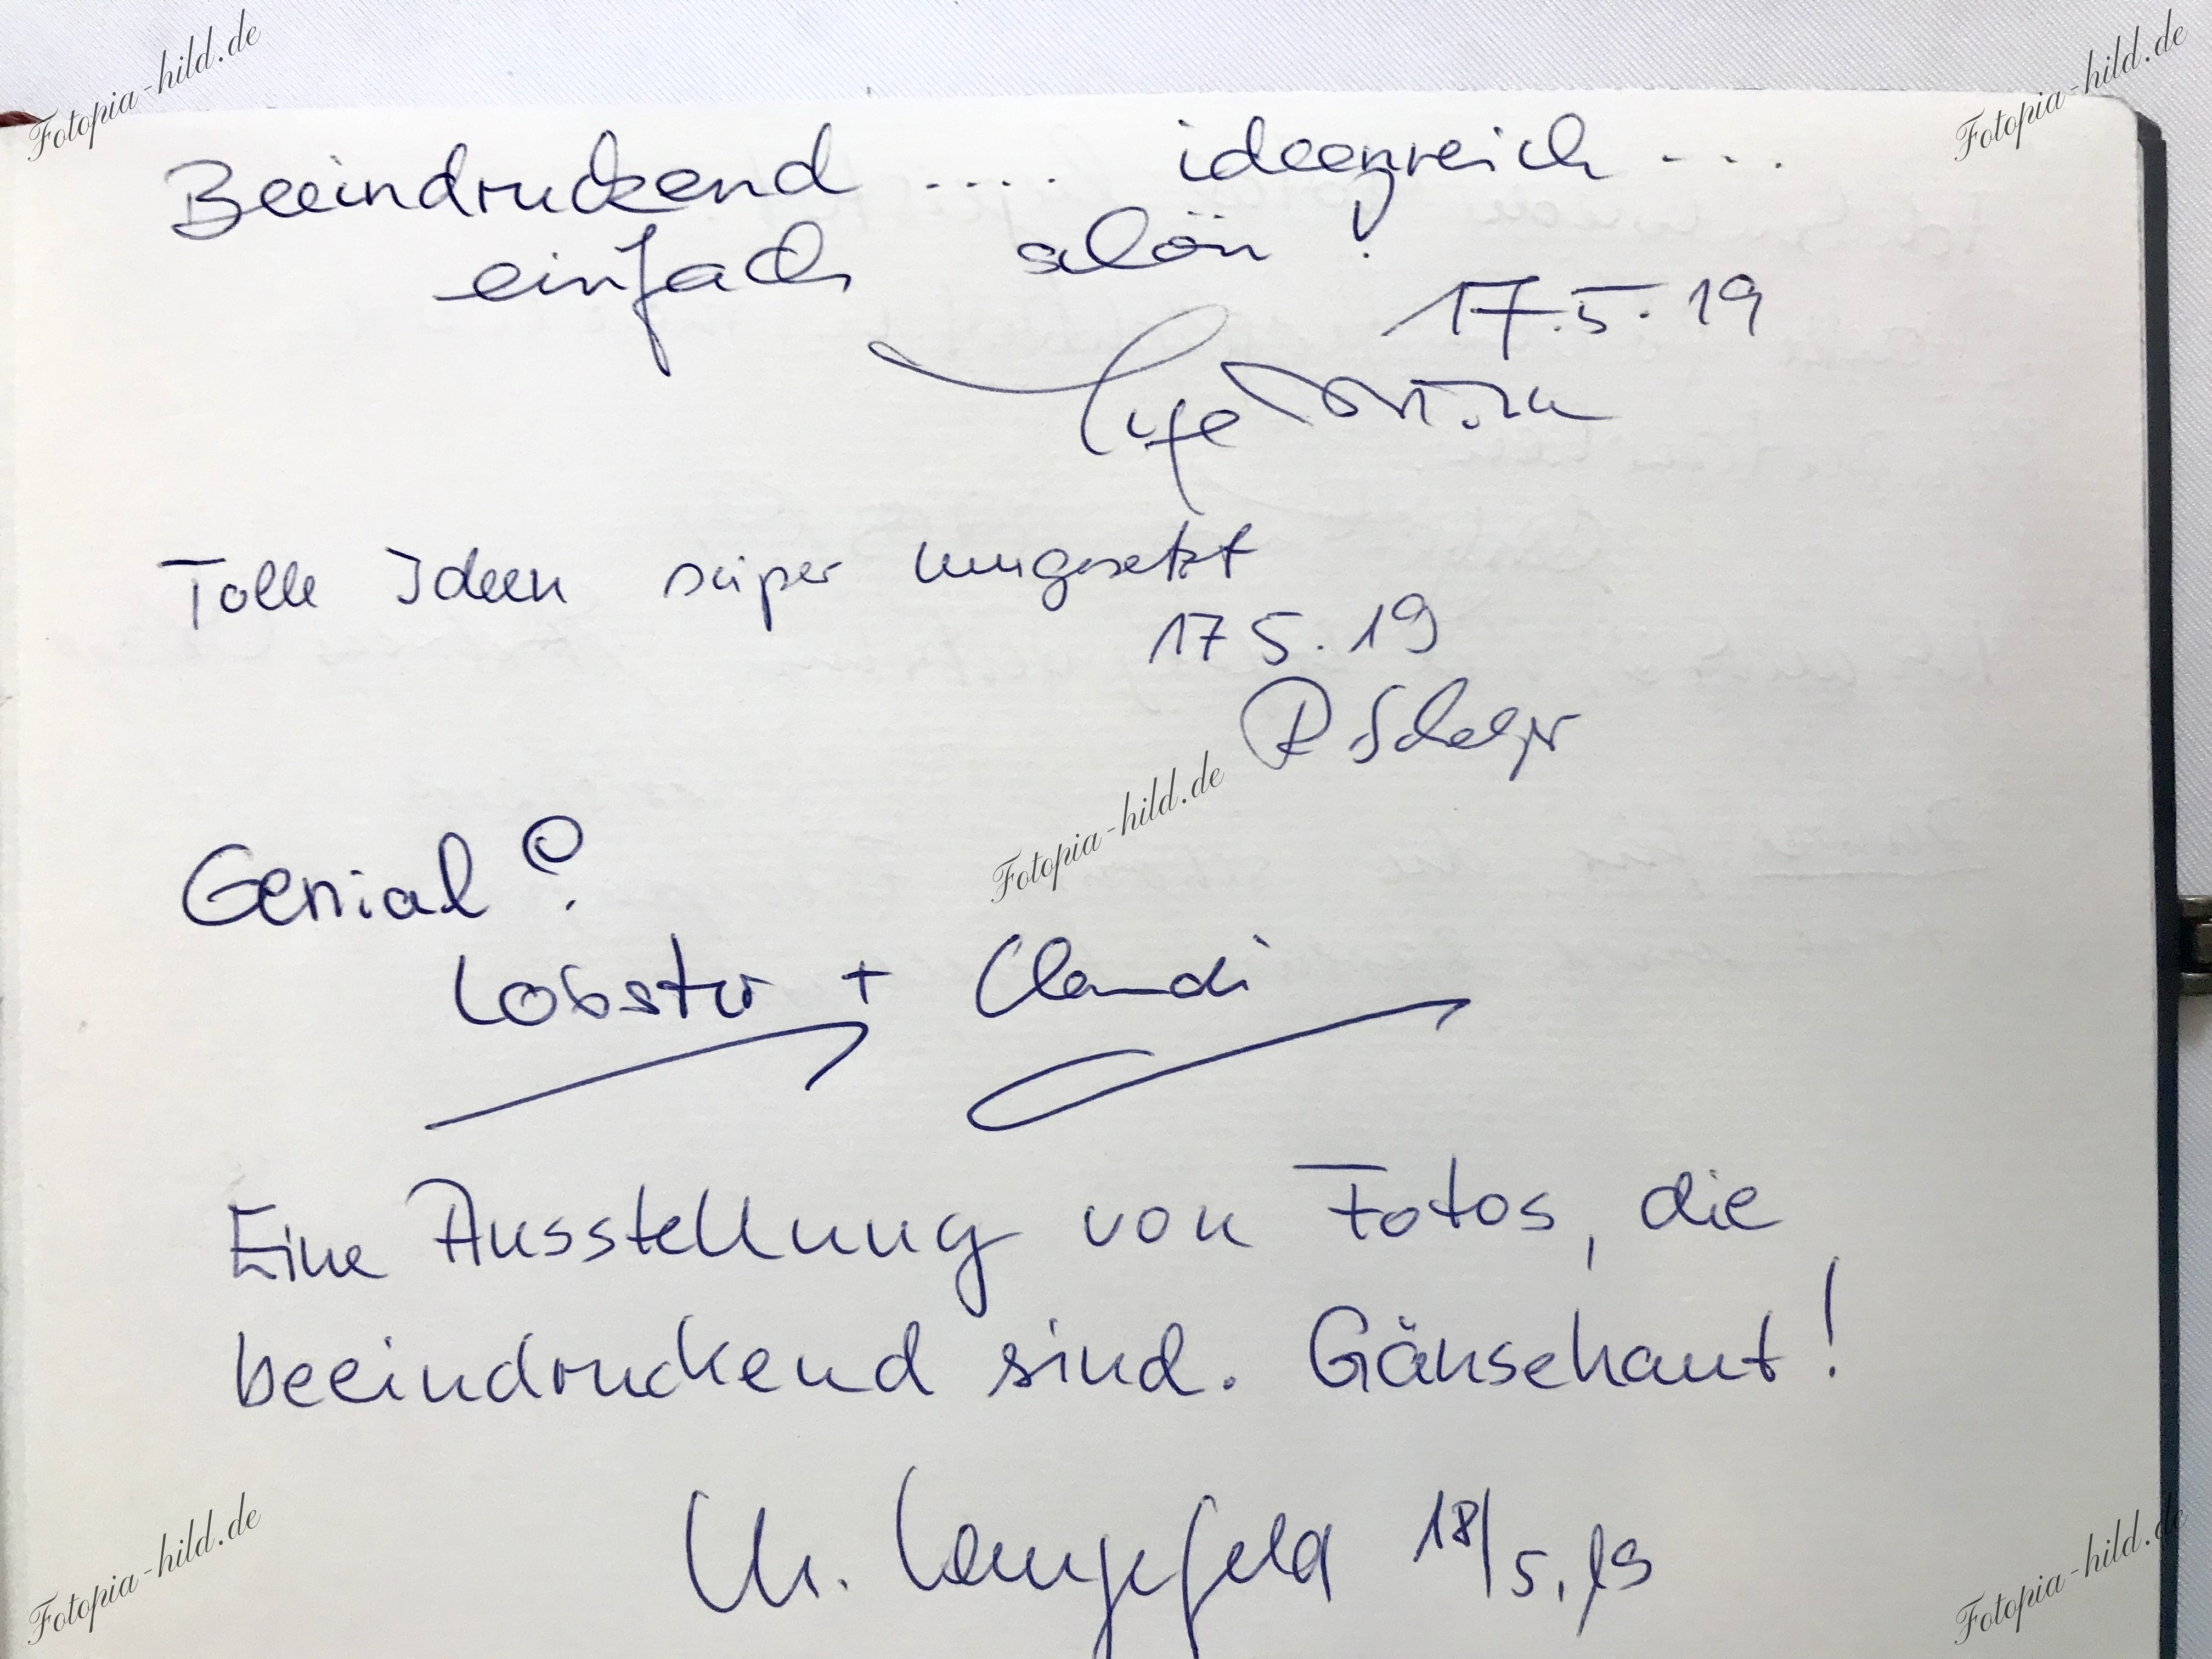 Fotopia-hild.de
Fotopia-hild.de
Beeindruckend .... ideenreich ...
einfach schön!
17.5.19
Tolle Ideen super umgesetzt
17 5.19
R
Fotopia-hild.de
Genial!
Lobster + Claudi
Eine Ausstellung von Fotos, die
beeindruckend sind. Gänsehaut!
Langefeld 18/5.19
Fotopia-hild.de
Fotopia-hild.de